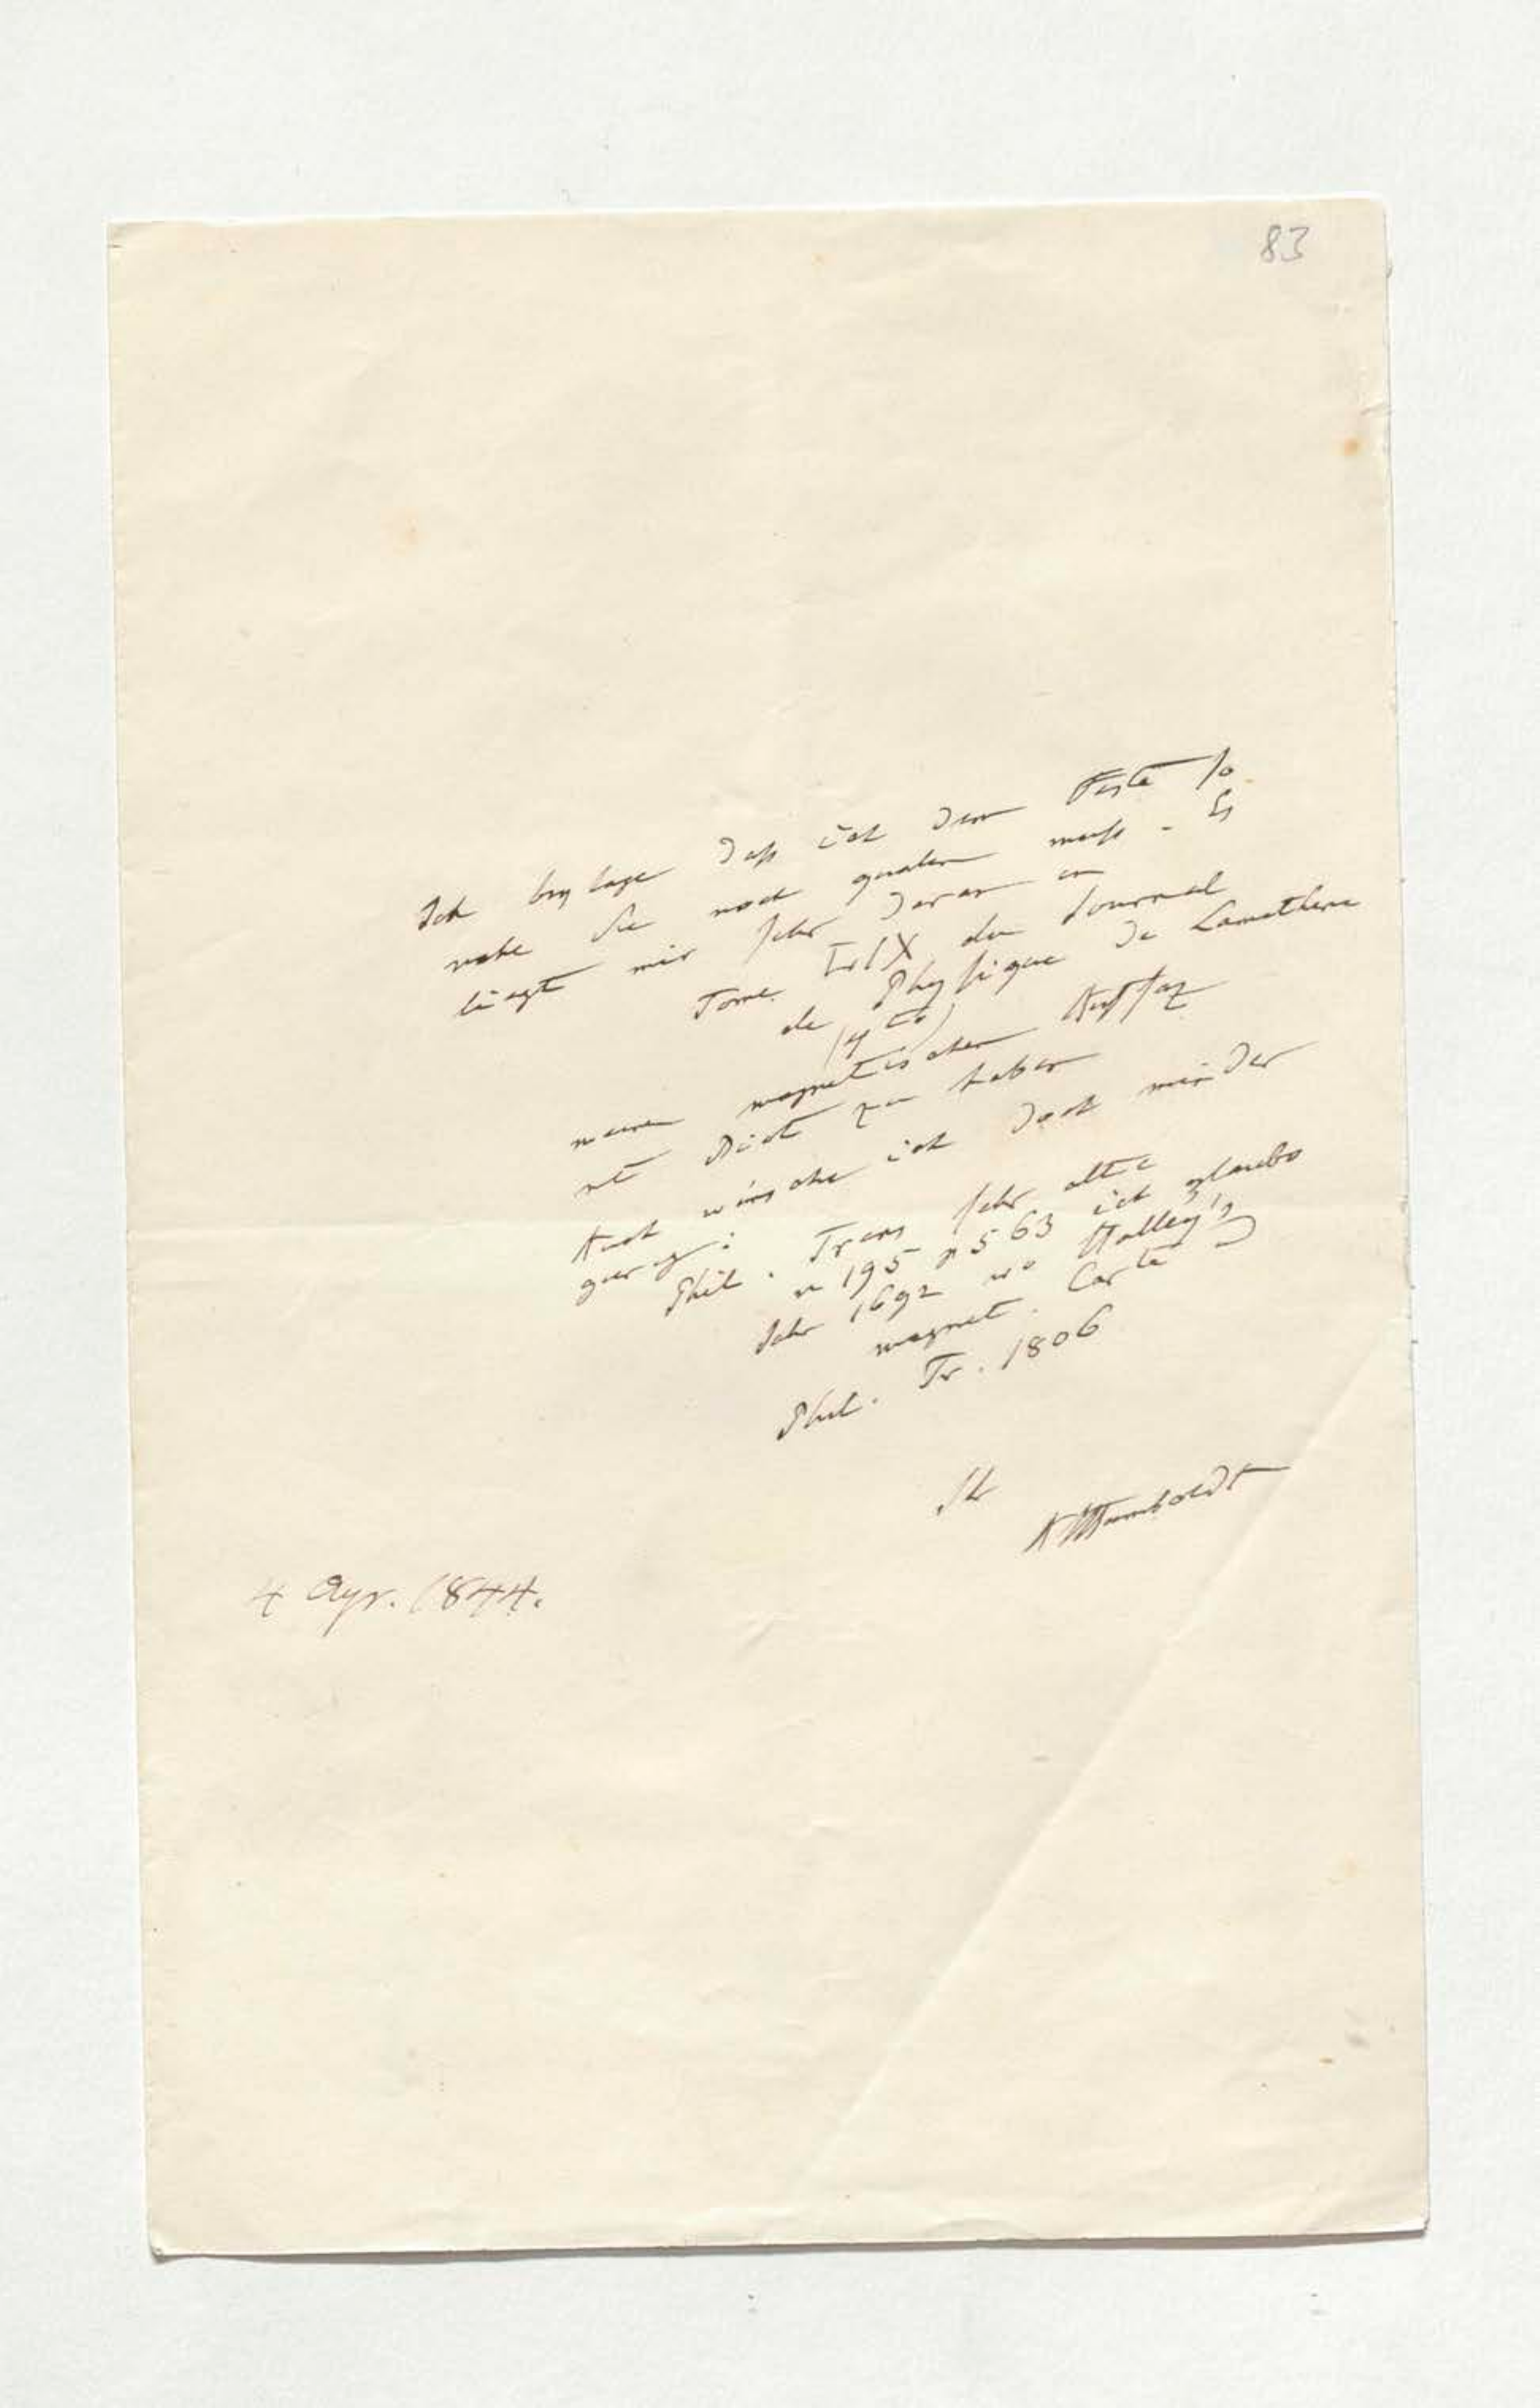 83
Ich beklage daß ich dem Feste so
nahe Sie noch quälen muß. Es
liegt mir sehr daran en
Tome LIX du Journal
de Physique de Lametherie
(4to)
meinen magnetischen Aufsaz
mit Biot zu haben
Auch wünsche ich doch minder
gierig:
Phil. Trans sehr alte
n 195 p 563 ich glaube
Jahr 1692 wo Halley's
magnet. Carte
Phil. Tr. 1806
Ihr
AHumboldt
4 Apr. 1844.